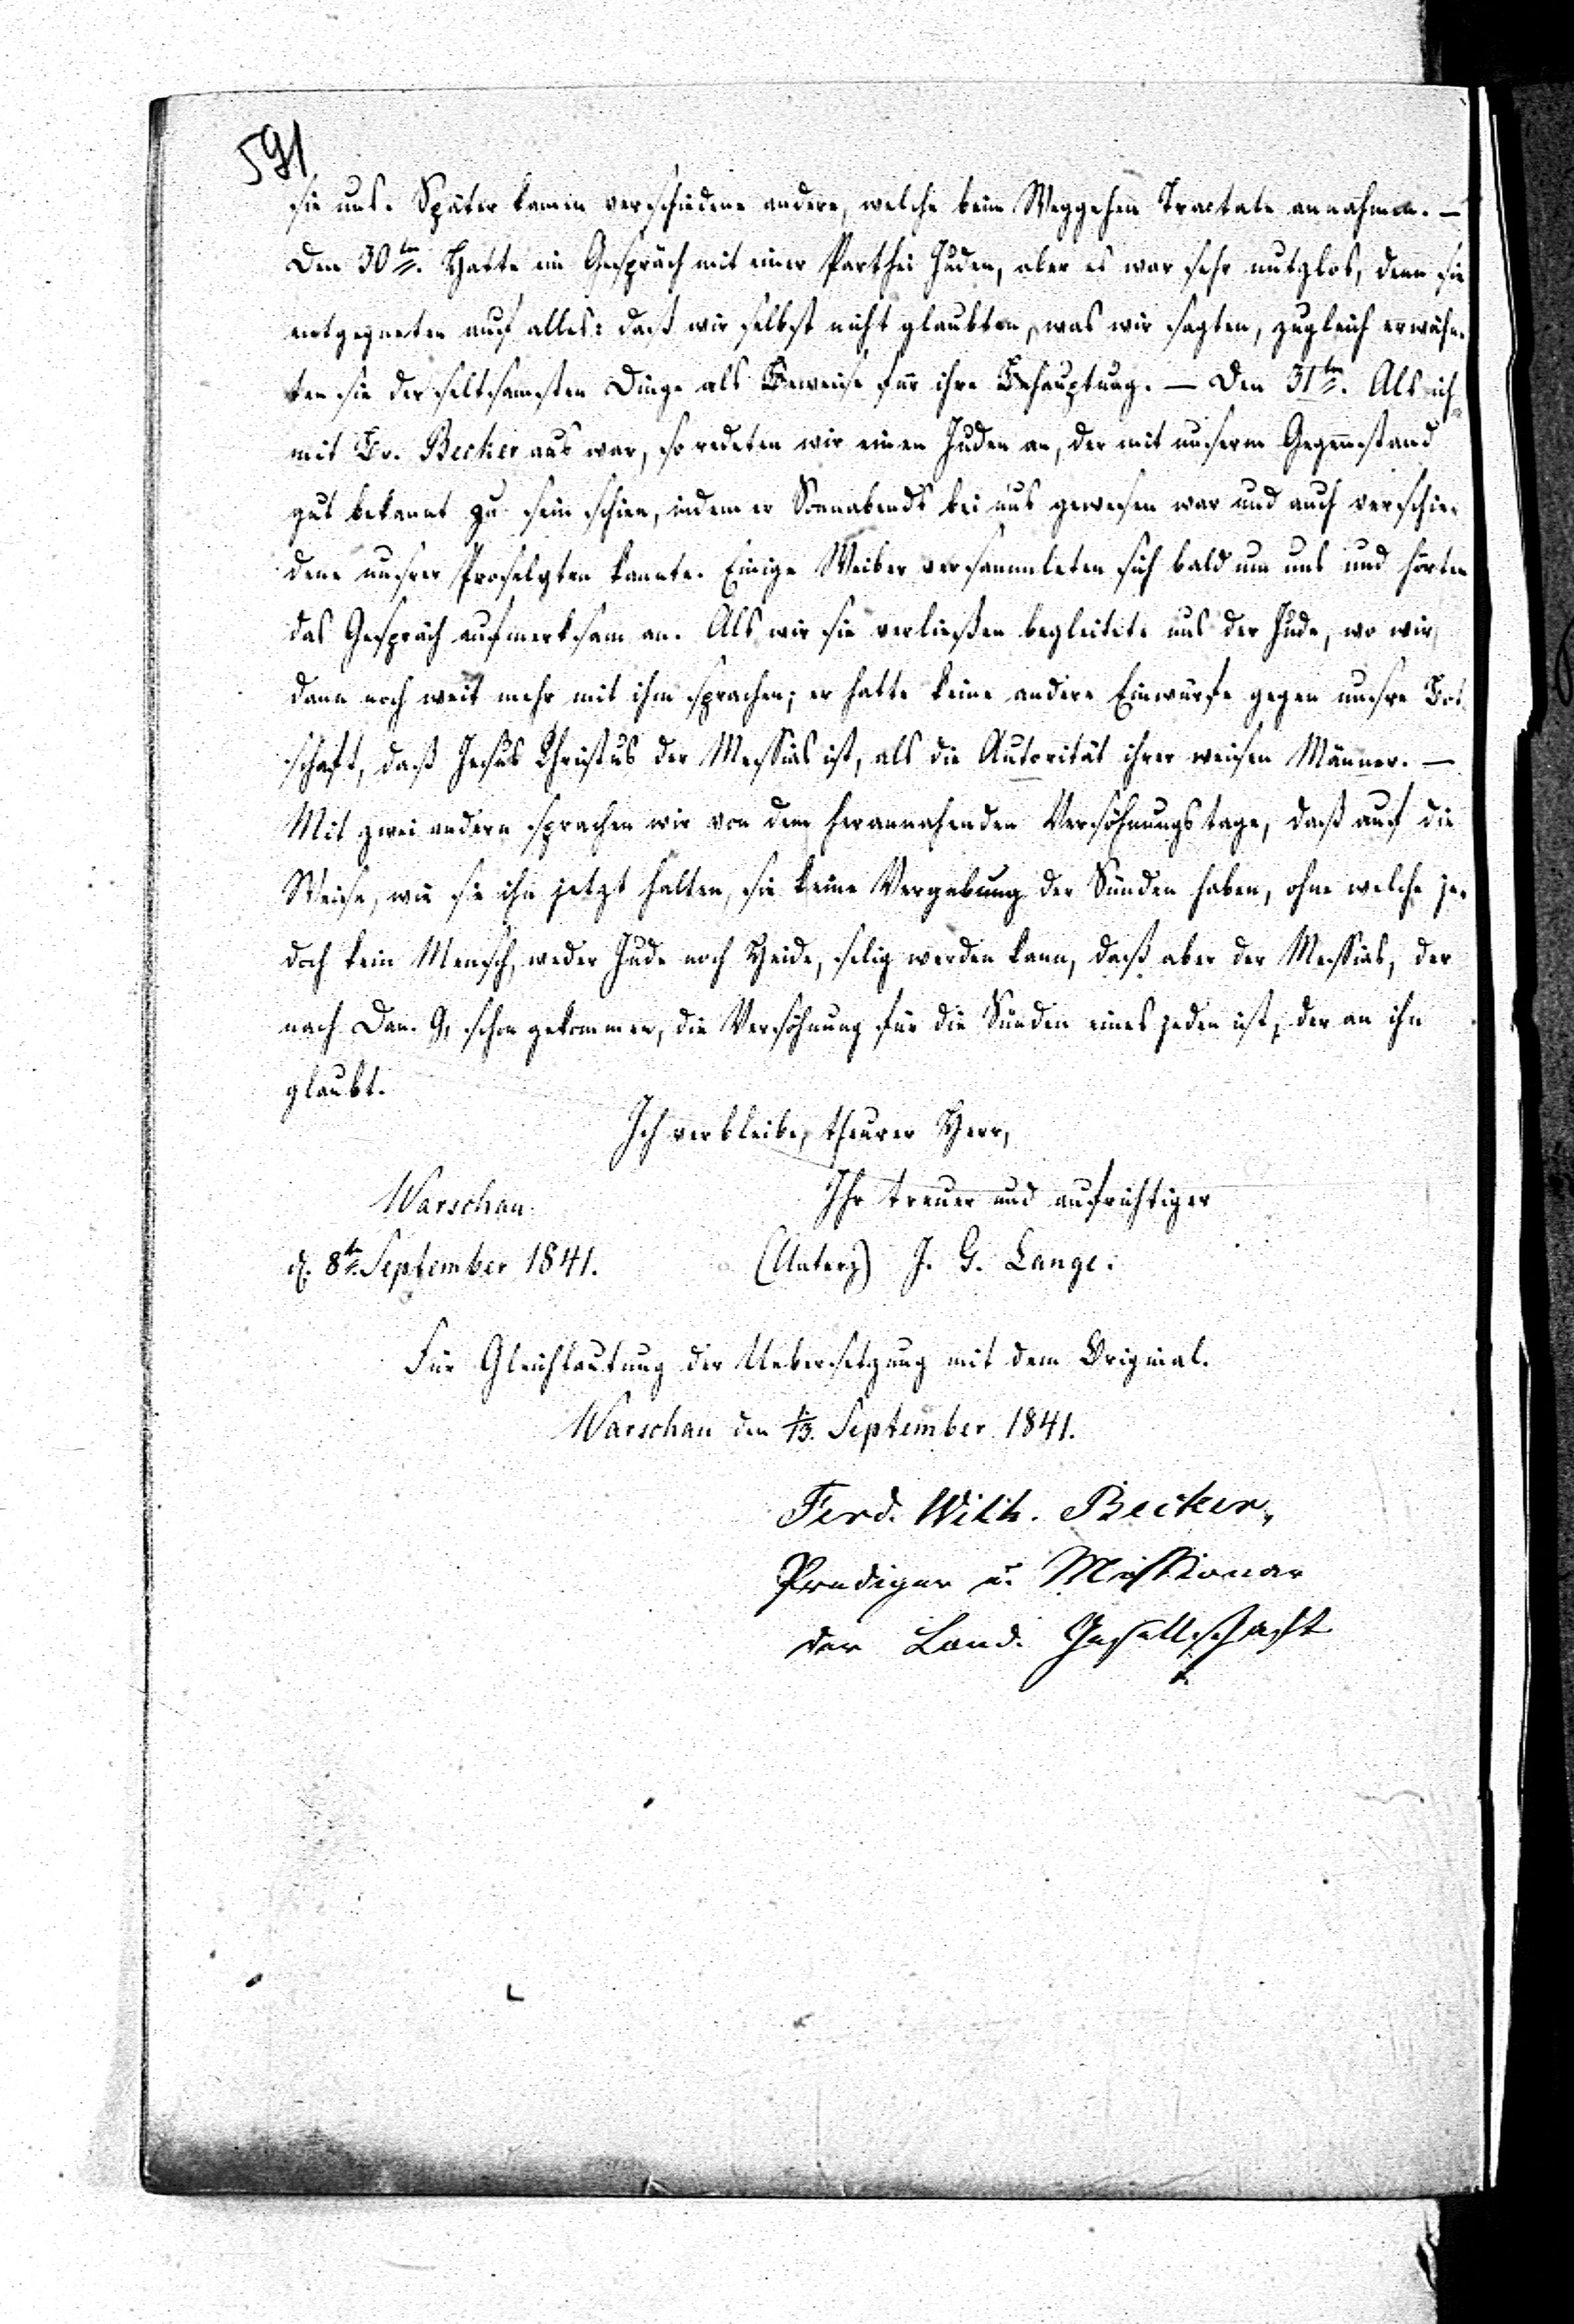 591
sie uns. Später kamen verschiedene andere, welche beim Weggehen Tractate annahmen. —
Den 30ten. Hatte ein Gespräch mit einer Parthei Juden, aber es war sehr nutzlos, denn sie
entgegneten auf alles: daß wir selbst nicht glaubten, was wir sagten, zugleich erwähn-
ten sie der seltsamsten Dinge als Beweise für ihre Behauptung. — Den 31ten. Als ich
mit Br. Becker aus war, so redeten wir einen Juden an, der mit unserm Gegenstand
gut bekannt zu sein schien, indem er Sonnabends bei uns gewesen war und auch verschie-
dene unsrer Proselyten kannte. Einige Weiber versammleten sich bald um uns und hörten
das Gespräch aufmerksam an. Als wir sie verließen begleitete uns der Jude, wo wir
dann noch weit mehr mit ihm sprachen; er hatte keine andere Einwürfe gegen unsre Bot-
schaft, daß Jesus Christus der Messias ist, als die Autorität ihrer weisen Männer. —
Mit zwei andern sprachen wir von dem herannahenden Versöhnungstage, daß auf die
Weise, wie sie ihn jetzt halten, sie keine Vergebung der Sünden haben, ohne welche je-
doch kein Mensch, weder Jude noch Heide, selig werden kann, daß aber der Messias, der
nach Dan. 9, schon gekommen, die Versöhnung für die Sünden eines jeden ist, der an ihn
glaubt.
Ich verbleibe, theurer Herr,
Ihr treuer und aufrichtiger
Warschau
d. 8ten September 1841.
(Unterz) J. G. Lange.
Für Gleichlautung der Uebersetzung mit dem Original.
Warschau den 1/13. September 1841.
Ferd. Wilh. Becker,
Prediger u. Missionar
der Lond. Gesellschaft